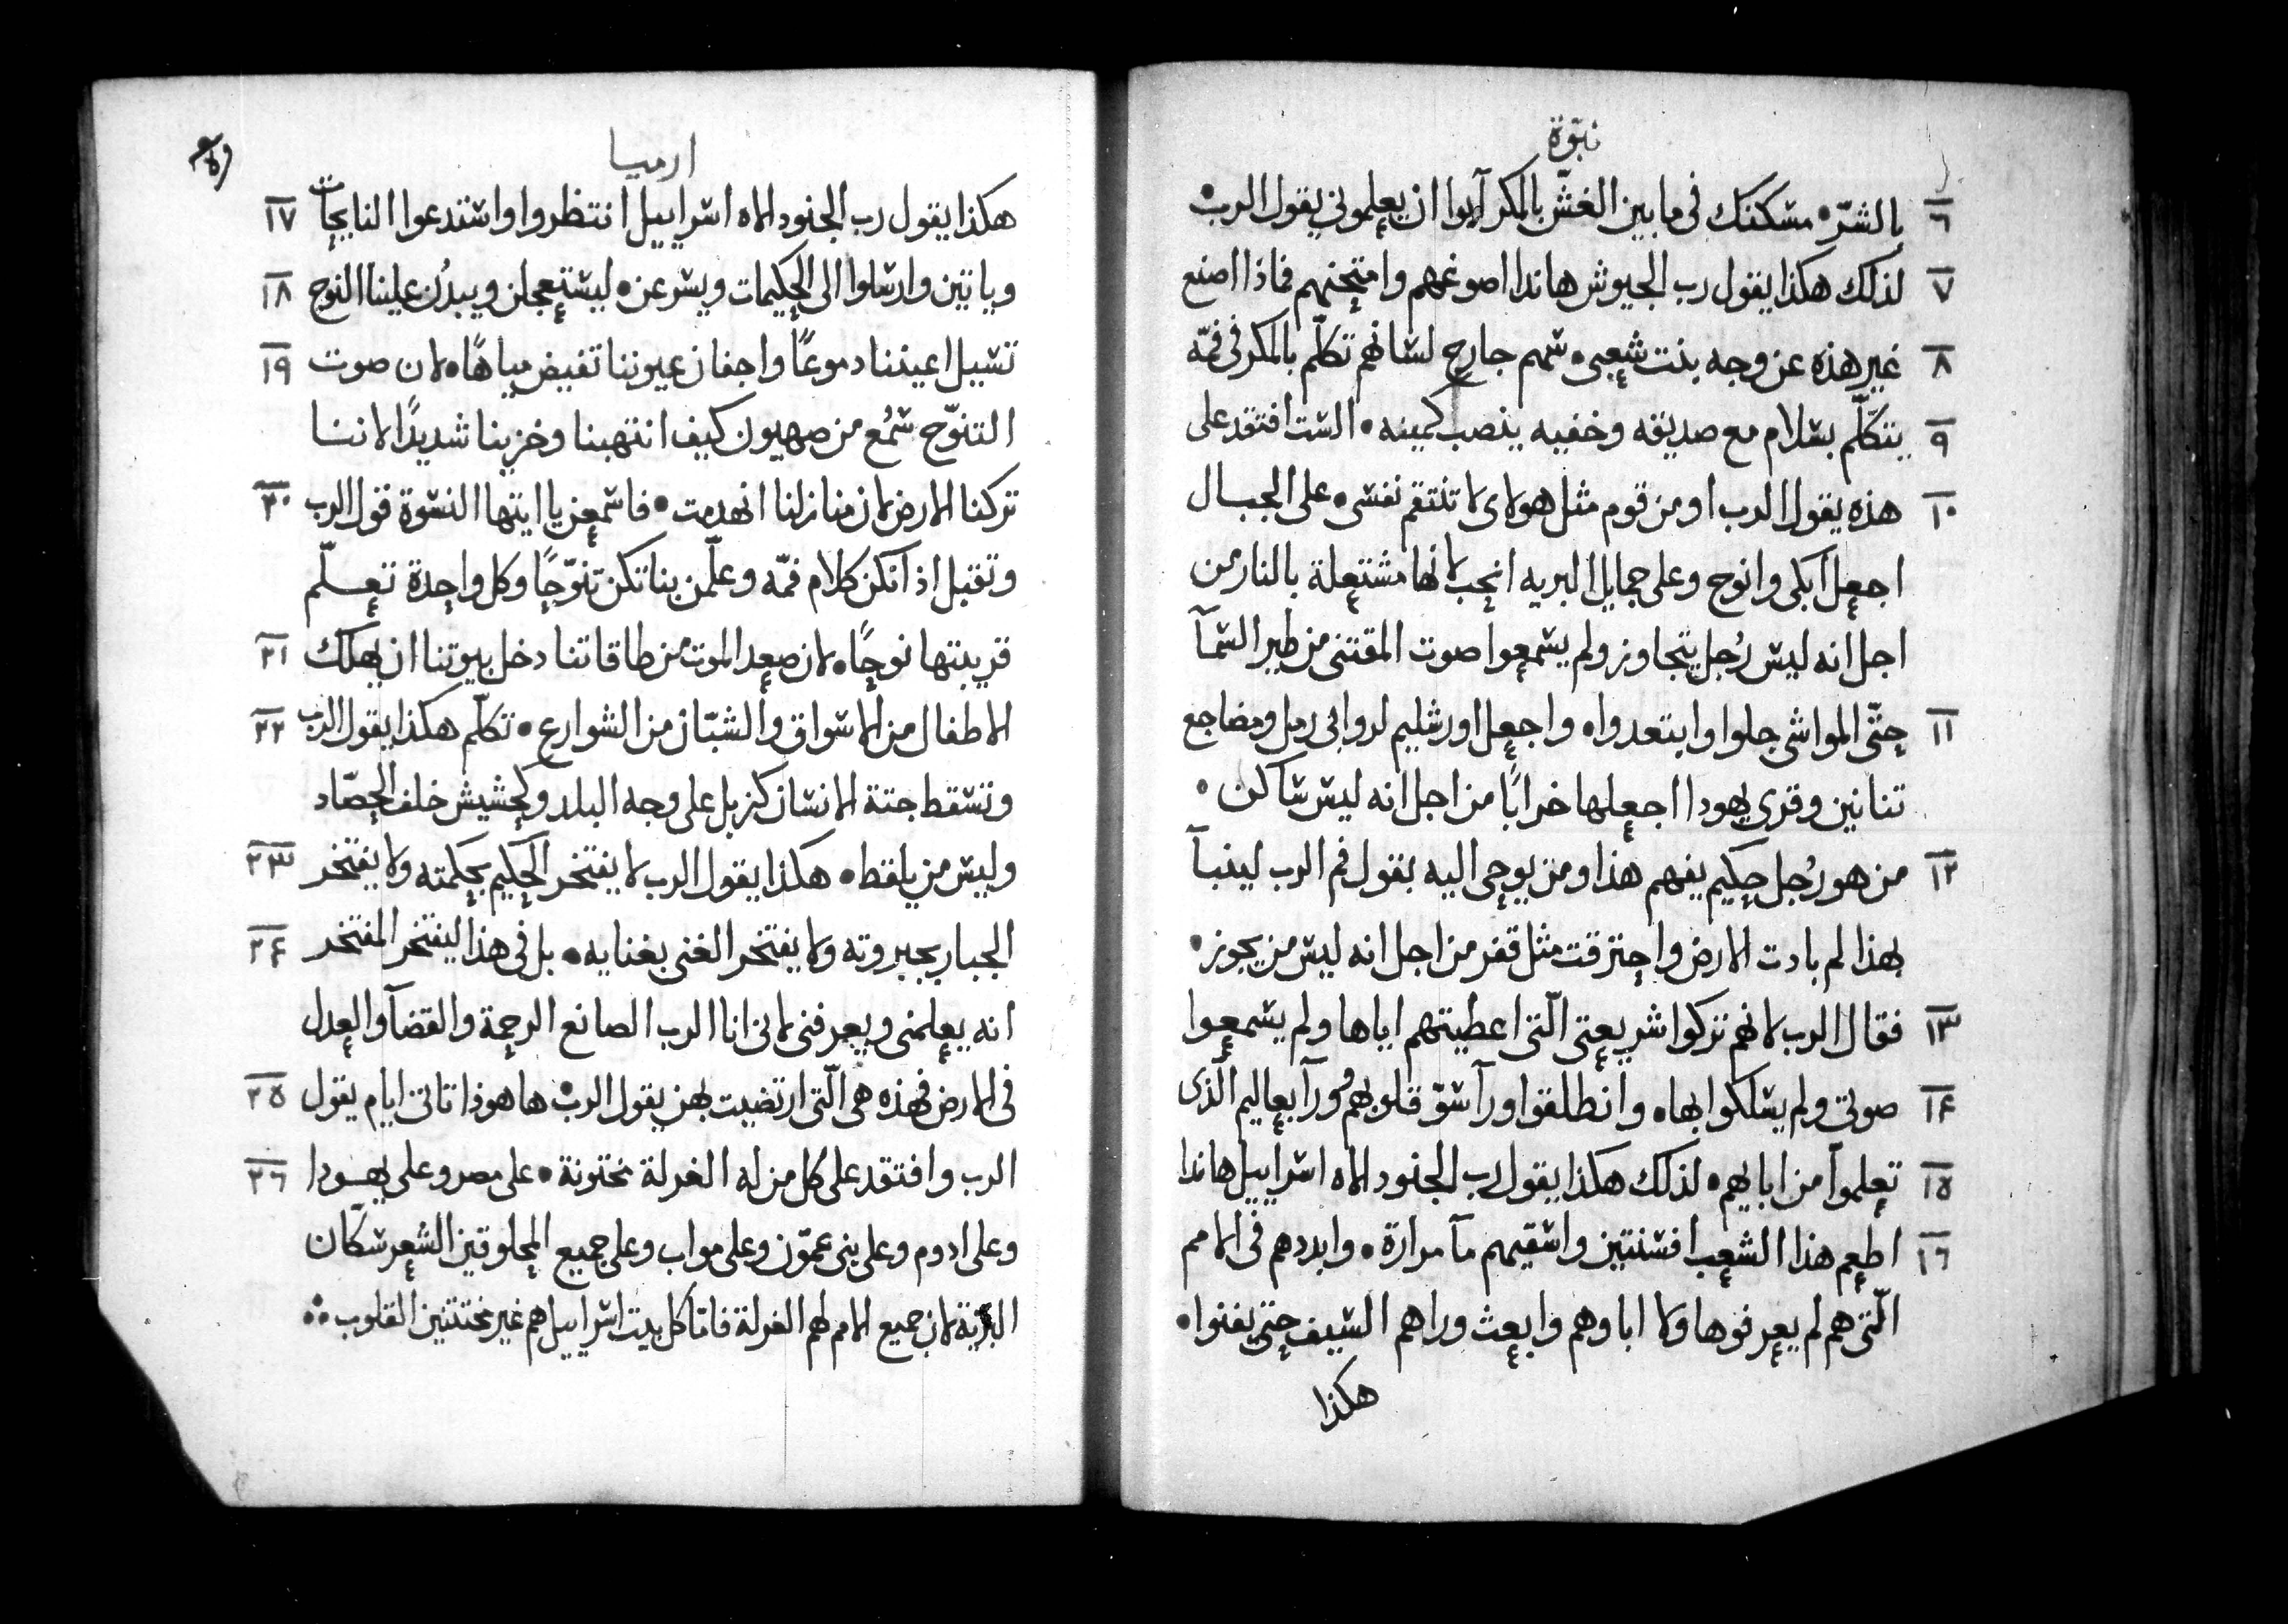 نبوّة
٦ بالشرّ • مسكنك فى ما بين الغشّ بالمكر آبوا ان يعلمونى يقول الرب •
٧ لذلك هكذا يقول رب الجيوش هاندا اصوغهم وامتحنهم فماذا اصنع
٨ غير هذه عن وجه بنت شعبى • سهم جارح لسانهم تكلّم بالمكر فى فمّه
٩ يتكلّم بسلام مع صديقه وخفيه ينصب كمينه • الست افتقد على
١٠ هذه يقول الرب او من قوم مثل هولاى لا تنتقم نفسى • على الجبال
اجعل ابكى وانوح وعلى جمايل البريه انحب لانها مشتعلة بالنار من
اجل انه ليس رُجل يتجاوز ولم يسمعوا صوت المقتنى من طير السمآ
١١ حتّى المواشى جلوا وابتعدوا • واجعل اورشليم لروابى رمل ومضاجع
تنانين وقرى يهودا اجعلها خرابًا من اجل انه ليس ساكن •
١٢ من هو رُجل حكيم يفهم هذا ومن يوحى اليه بقول فم الرب لينبآ
بهذا لم بادت الارض واحترقت مثل قفر من اجل انه ليس من يجوز •
١٣ فقال الرب لانهم تركوا شريعتى الّتى اعطيتهم اياها ولم يسمعوا
١٤ صوتى ولم يسلكوا بها • وانطلقوا ورآ سوّ قلوبهم وورآ بعاليم الّذى
١٥ تعلموا من ابايهم • لذلك هكذا يقول رب الجنود الاه اسراييل هاندا
١٦ اطعم هذا الشعب افسنتين واسقيهم مآ مرارة • وابددهم فى الامم
الّتى هم لم يعرفوها ولا اباوهم وابعث وراهم السيف حتى يفنوا •
هكذا
ارميا
هكذا يقول رب الجنود الاه اسراييل انتظروا واستدعوا النايحات ١٧
وياتين وارسلوا الى الحكيمات ويسرعن • ليستعجلن ويبدُن علينا النوح ١٨
تسيل اعيننا دموعًا واجفان عيوننا تفيض مياهًا • لان صوت ١٩
التنوّح سُمع من صهيون كيف انتهبنا وخزينا شديدًا لاننا
تركنا الارض لان منازلنا انهدمت • فاسمعن يا ايتها النسوة قول الرب ٢٠
وتقبل اذآنكن كلام فمّه وعلّمن بناتكن تنوّحًا وكل واحدة تعلّم
قرينتها نوحًا • لان صعد الموت من طاقاتنا دخل بيوتنا ان يهلك ٢١
الاطفال من الاسواق والشبّان من الشوارع • تكلّم هكذا يقول الرب ٢٢
وتسقط جتة الانسان كزبل على وجه البلد وكحشيش خلف الحصّاد
وليس من يلقط • هكذا يقول الرب لا يفتخر الحكيم بحكمته ولا يفتخر ٢٣
الجبار بجبروته ولا يفتخر الغنى بغنايه • بل فى هذا ليفتخر المفتخر ٢٤
انه يعلمنى ويعرفنى لانى انا الرب الصانع الرحمة والقضآ والعدل
فى الارض فهذه هى الّتى ارتضيت بهن يقول الرب • ها هوذا تاتى ايام يقول ٢٥
الرب وافتقد على كل من له الغرلة مختونة • على مصر وعلى يهودا ٢٦
وعلى ادوم وعلى بنى عمّون وعلى مواب وعلى جميع المحلوقين الشعر سكّان
البرّية لان جميع الامم لهم الغرلة فامّا كل بيت اسراييل هم غير مختتنين القلوب •